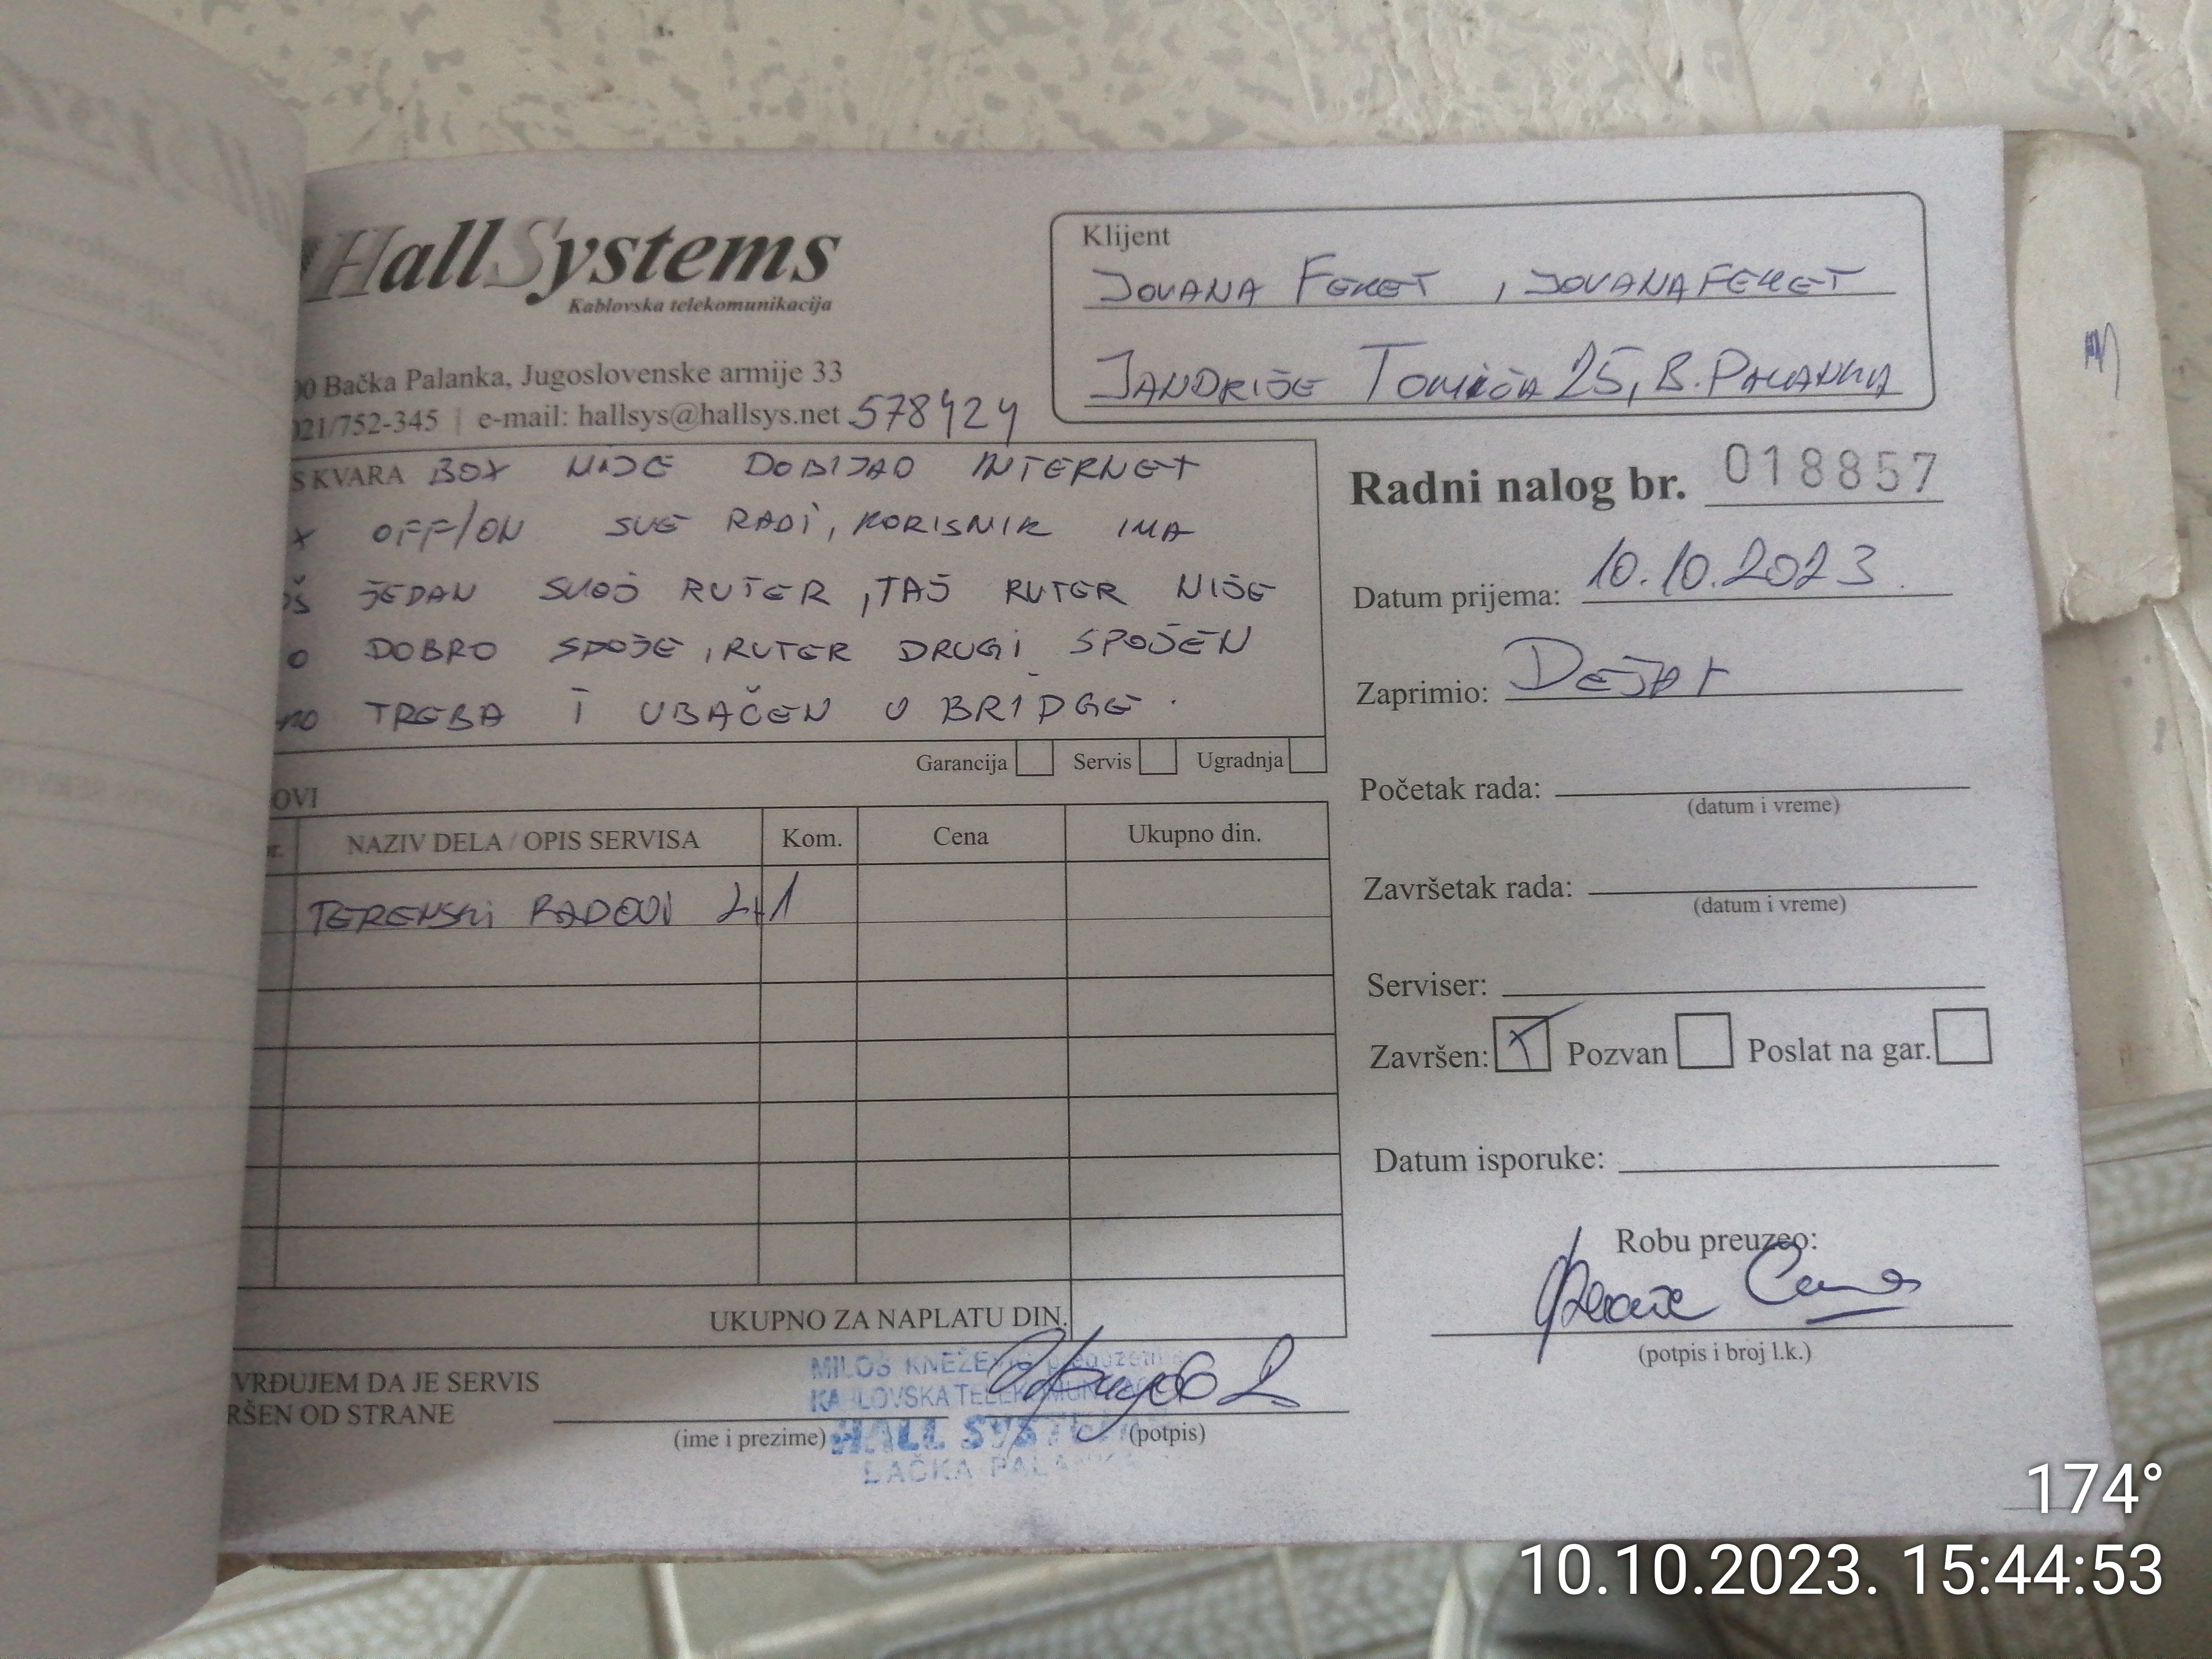 HallSystems
Kablovska telekomunikacija
00 Bačka Palanka, Jugoslovenske armije 33
021/752-345 | e-mail: hallsys@hallsys.net 578424
Klijent
JOVANA FEKET , JOVANAFEKET
JANDRIJE TOMIĆA 25, B. PALANKA
S KVARA BOX NIJE DOBIJAO INTERNET
X OFF/ON SVE RADI, KORISNIK IMA
OŠ JEDAN SVOJ RUTER, TAJ RUTER NIJE
O DOBRO SPOJE, RUTER DRUGI SPOJEN
KO TREBA I UBAČEN U BRIDGE.
Garancija Servis Ugradnja
OVI
NAZIV DELA / OPIS SERVISA Kom. Cena Ukupno din.
TERENSKI RADOVI 2+1
UKUPNO ZA NAPLATU DIN.
VRĐUJEM DA JE SERVIS
RŠEN OD STRANE
(ime i prezime) (potpis)
MILOŠ KNEŽEVIĆ preduzetnik
KABLOVSKA TELEKOMUNIKACIJA
HALL SYSTEMS
BAČKA PALANKA
Radni nalog br. 018857
Datum prijema: 10.10.2023.
Zaprimio: DEJAN
Početak rada:
(datum i vreme)
Završetak rada:
(datum i vreme)
Serviser:
Završen: X Pozvan Poslat na gar.
Datum isporuke:
Robu preuzeo:
(potpis i broj l.k.)
174°
10.10.2023. 15:44:53